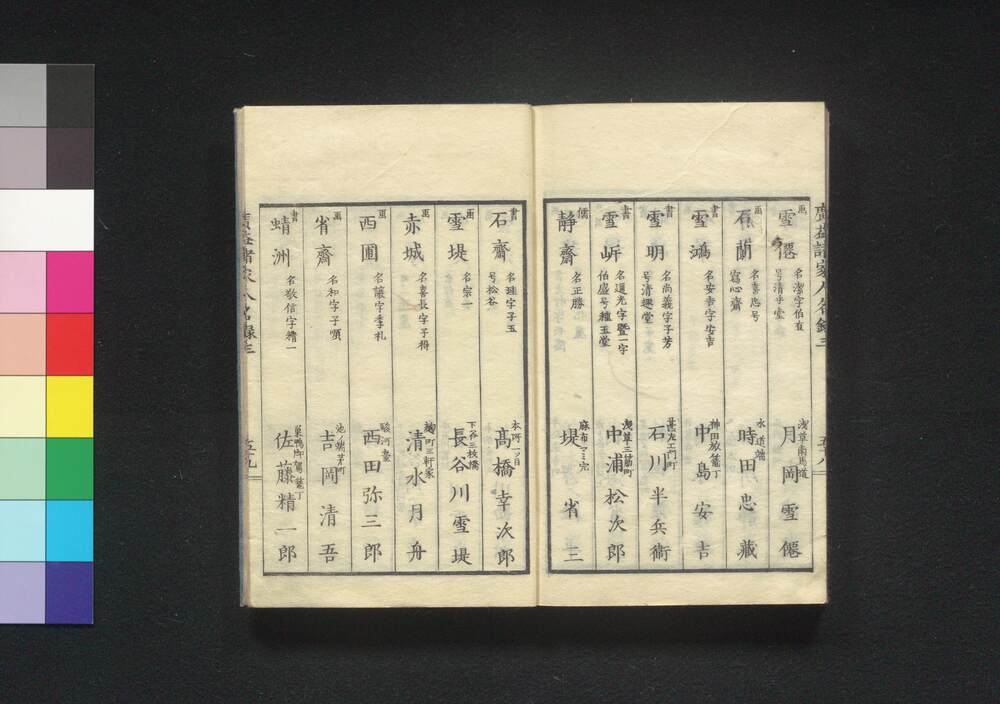 廣益諸家人名録三
五十八
画
雪僊
名潔字伯直
号清乎堂
浅草南馬道
月岡雪僊
画
石蘭
名喜忠号
寫心齋
水道端
時田忠藏
書
雪鴻
名安吉字安吉
神田旅篭丁
中島安吉
書
雪明
名尚義字子芳
号清趣堂
甚左エ門町
石川半兵衛
書
雪岍
名通光字暨一字
伯盛号種玉堂
浅草三筋町
中浦松次郎
儒
静齋
名正勝
麻布マミ穴
堤省三
書
石齋
名珪字子玉
号松谷
本所一ツ目
髙橋幸次郎
画
雪堤
名宗一
下谷三枚橋
長谷川雪堤
画
赤城
名喜長字子得
麹町三軒家
清水月舟
画
西圃
名讓字季札
駿河臺
西田弥三郎
画
省齋
名和字子順
池ノ端茅町
吉岡清吾
書
蜻洲
名敬信字精一
巣鴨御駕篭丁
佐藤精一郎
廣益諸家人名録三
五十九